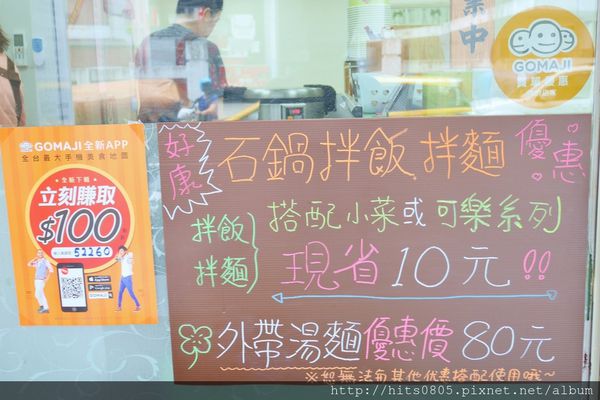 業中
GOMAJI
GOMAJI 全新APP
全台最大手機美食地圖
全新下載
立刻賺取
$100
52260
好康
石鍋拌飯 拌麵 優惠
拌飯
拌麵
搭配小菜或可樂系列
現省10元!!
外帶湯麵優惠價80元
※恕無法和其他優惠搭配使用哦~
http://hits0805.pixnet.net/album